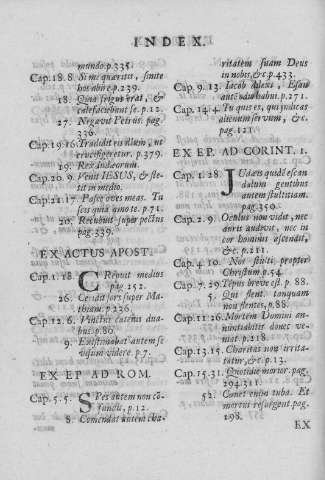 INDEX.
mundo. p.335.
Cap. 18. 8. Si me quæritis, sinite
hos abire. p.239.
18. Quia frigus erat, &
calefaciebant se. p.12.
27. Negavit Petrus. pag.
336.
Cap. 19. 16. Tradidit eis illum, ut
crucifigeretur. p.379.
19. Rex Iudæorum.
Cap. 20. 9. Venit IESUS, & ste-
tit in medio.
Cap. 21. 17. Pasce oves meas. Tu
scis quia amo te. p.71.
20. Recubuit super pectus
pag. 339.
EX ACTUS APOST.
Cap. 1. 18. CRepuit medios
pag. 252.
26. Cecidit sors super Ma-
thiam. p.226.
Cap. 12. 6. Vinctus catenis dua-
bus. p.80.
9. Existimabat autem se
visum videre. p.7.
EX EP. AD ROM.
Cap. 5. 5. SPes autem non cō-
fundit, p.12.
8. Comendat autem cha-
ritatem suam Deus
in nobis, &c. p.433.
Cap. 9. 13. Iacob dilexi, Esau
autē odio habui. p.271.
Cap. 14. 4. Tu quis es, qui judicas
alienum servum, &c.
pag. 121.
EX EP. AD CORINT. 1.
Cap. 1. 28. JUdæis quidē scan-
dalum gentibus
autem stultitiam.
pag. 350.
Cap. 2. 9. Oculus non vidit, nec
auris audivit, nec in
cor hominis ascendit,
& c. p.211.
Cap. 4. 10. Nos stulti propter
Christum. p.54.
Cap. 7. 29. Tempus breve est. p. 88.
5. Qui flent, tanquam
non flentes, p.88.
Cap. 11. 26. Mortem Domini an-
nuntiabitis donec ve-
niat. p.218.
Cap. 13. 15. Charitas non irrita-
tur, &c. p.13.
Cap. 15. 31. Quotidie morior. pag.
294. 311.
52. Canet enim tuba. Et
mortui resurgent. pag.
198.
EX